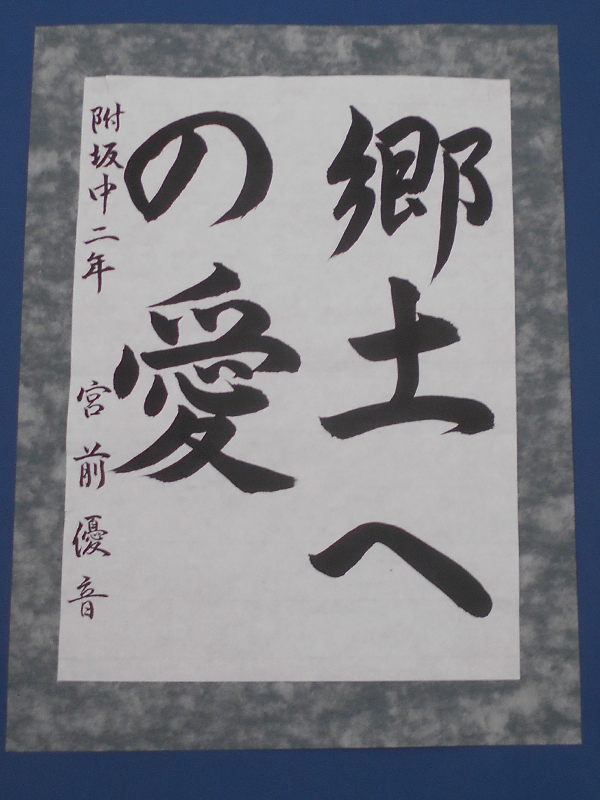 郷土へ
の愛
附坂中二年 宮前優音